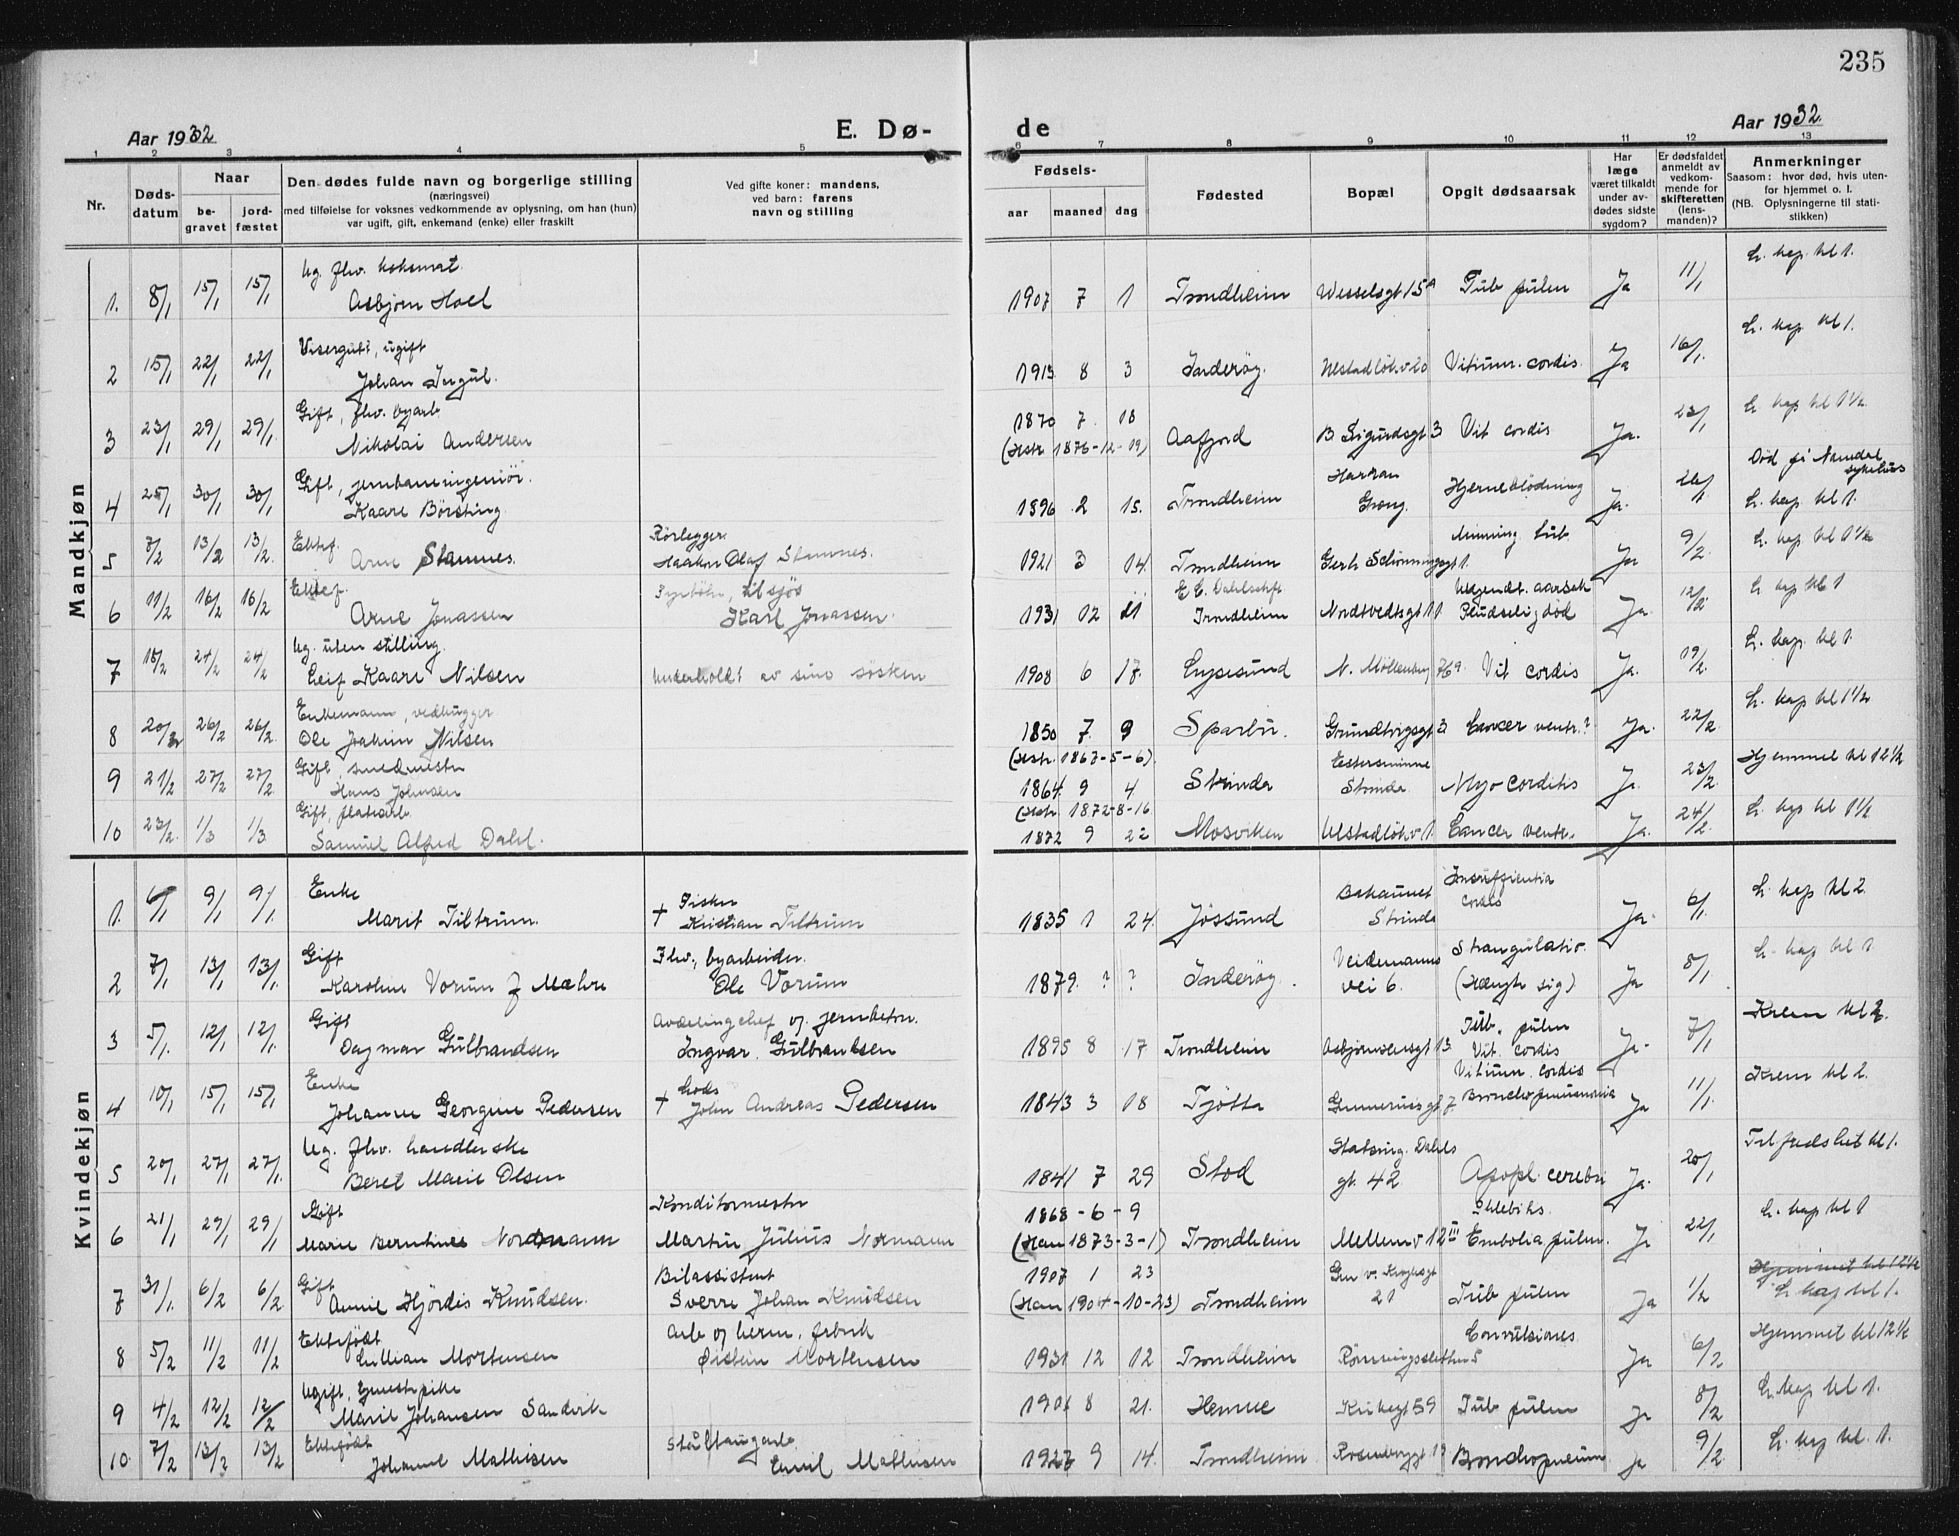 235
Aar 1932
E. Dø-
de
Aar 1932.
1 2 3 4 5 6 7 8 9 10 11 12 13
Nr.
Døds-
datum
Naar
be-
gravet
jord-
fæstet
Den dødes fulde navn og borgerlige stilling
(næringsvei)
med tilføielse for voksnes vedkommende av oplysning, om han (hun)
var ugift, gift, enkemand (enke) eller fraskilt
Ved gifte koner: mandens,
ved barn: farens
navn og stilling
Fødsels-
aar maaned dag
Fødested
Bopæl
Opgit dødsaarsak
Har
læge
været tilkaldt
under av-
dødes sidste
sygdom?
Er dødsfaldet
anmeldt av
vedkom-
mende for
skifteretten
(lens-
manden)?
Anmerkninger
Saasom: hvor død, hvis uten-
for hjemmet o. l.
(NB. Oplysningerne til stati-
stikken)
Mandkjøn
Ug. fhv. koksmat L. kap. kl 1.
1. 8/1 15/1 15/1 Asbjørn Hoel 1907 7 1 Trondheim Wesselsgt 15a Tub pulm Ja 11/1
Visergutt, ugift L. kap kl 1.
2 15/1 22/1 22/1 Johan Ingul. 1913 8 3 Inderøy. Vitium cordis. Ja 16/1.
Gift, fhv. byarb 1870 7. 18 L. kap kl 1½
3 23/1 29/1 29/1 Nikolai Andersen (Kstr. 1876-12-19) Aafjord B Sigurdsgt 3 Vit cordis Ja. 23/1
Gift, jernbaneingeniør. Harran Død på Namdal sykehus
4 25/1 30/1 30/1 Kaare Børsting. 1896 2 15. Trondheim Grong. Hjerneblødning Ja. 26/1 L. kap kl 1.
Ektef. Rørlegger. Mening tub
5 7/2 13/2 13/2 Arne Stamnes. Haakon Olaf Stamnes. 1921 3 14. Trondheim Gerh Schønningsgt 1. Ja 9/2. L. kap kl 1½
Ektef. Fyrbøter, tilsjøs E C. Dahlsstift Ukjendt aarsak L kap kl 1
6 11/2 16/2 16/2 Arne Jonassen Karl Jonassen. 1931 12 21 Trondheim Nordtvedtsgt 11 Pludselig død Ja. 12/2
Ug. uten stilling. L. kap. kl 1.
7 18/2 24/2 24/2 Leif Kaare Nilsen Underholdt av sine søsken 1908 6 17. Lysesund N. Møllenberg 76a. Vit cordis Ja. 19/2.
Enkemann, vedhugger L. kap kl 1½
8 20/2 26/2 26/2 Ole Joakim Nilsen 1850 7. 9 Sparbu. Grundtvigsgt 3 Cancer ventr.? Ja. 22/2
Gift, smedmester (Kstr. 1863-5-6) Hjemmet kl 12½
9 21/2 27/2 27/2. Hans Johnsen 1864. 9 4 Strinda Strinda Myocorditis Ja. 23/2.
Gift, (Kstr 1872-8-16 L. kap kl 1½
10 23/2. 1/3 1/3 Samuel Alfred Dahl. 1872 9 22 Mosviken Ulstadløkv 1. Cancer ventr. Ja. 24/2.
Kvindekjøn
Enke Fisker Bakaunet Insufficientia L. kap kl 2.
1. 6/1 9/1 9/1 Marit Tiltrum. † Kristian Tiltrum 1835 1 24. Jøssund Strinda cordis Ja. 6/1.
Gift Fhv., byarbeider. Veidemanns Strangulatio. L. kap kl 1
2 7/1 13/1 13/1 Karoline Vorum f Mæhre Ole Vorum 1879. ? ? Inderøy. vei 6. (Hængte sig) Ja 8/1
Gift Avdelingchef og jernbetm. Tub. pulm Krem kl 2.
3 5/1. 12/1 12/1. Dagmar Gulbrandsen Ingvar Gulbrandsen 1895 8 17 Trondheim Asbjørnsensgt 13. Vit. cordis Ja. 7/1
Enke Lods Vitium. cordis Krem kl 2.
4 10/1 15/1 15/1 Johanne Georgine Pedersen † John Andreas Pedersen 1843 3 18 Tjøtta Gunnerusgt 7 Bronchopneumonia Ja 11/1.
Ug. fhv. handlerske Statsing. Dahls Tilfredshet kl 1.
5 20/1 27/1 27/1. Beret Marie Olsen 1841 7 29 Stod gt. 42 Apopl. cerebri Ja. 20/1
Gift Konditormester 1868-6-9 Flebitis. L. kap kl 1
6 21/1 29/1 29/1 Marie Berntine Normann Martin Julius Normann (Han 1873-3-1) Trondheim Mellemv 12III Embolia pulm. Ja 22/1
Gift Bilassistent 1907 1 23 Gen v. Kroghsgt Hjemmet kl 12½
7 31/1. 6/2 6/2 Annie Hjørdis Knudsen. Sverre Johan Knudsen (Han 1904-10-23) Trondheim 21 Tub pulm Ja 1/2 L. kap kl 1.
Ektefødt Convulsiones Hjemmet kl 12½
8 5/2 11/2 11/2 Lillian Mortensen Øistein Mortensen 1931 12 12 Trondheim Rønningsletten 5 Ja 6/2
Ugift, tjenestepike L. kap kl 1.
9 4/2 12/2 12/2 Marie Johansen Sandvik 1901 8 21. Hemne Kirkegt 59 Tub pulm Ja 8/2
Ektefødt L. kap kl. 1.
10. 7/2 13/2 13/2 Johanne Mathisen Emil Mathisen 1927 9 14. Trondheim Rosenborggt 19 Bronchopneum Ja 9/2